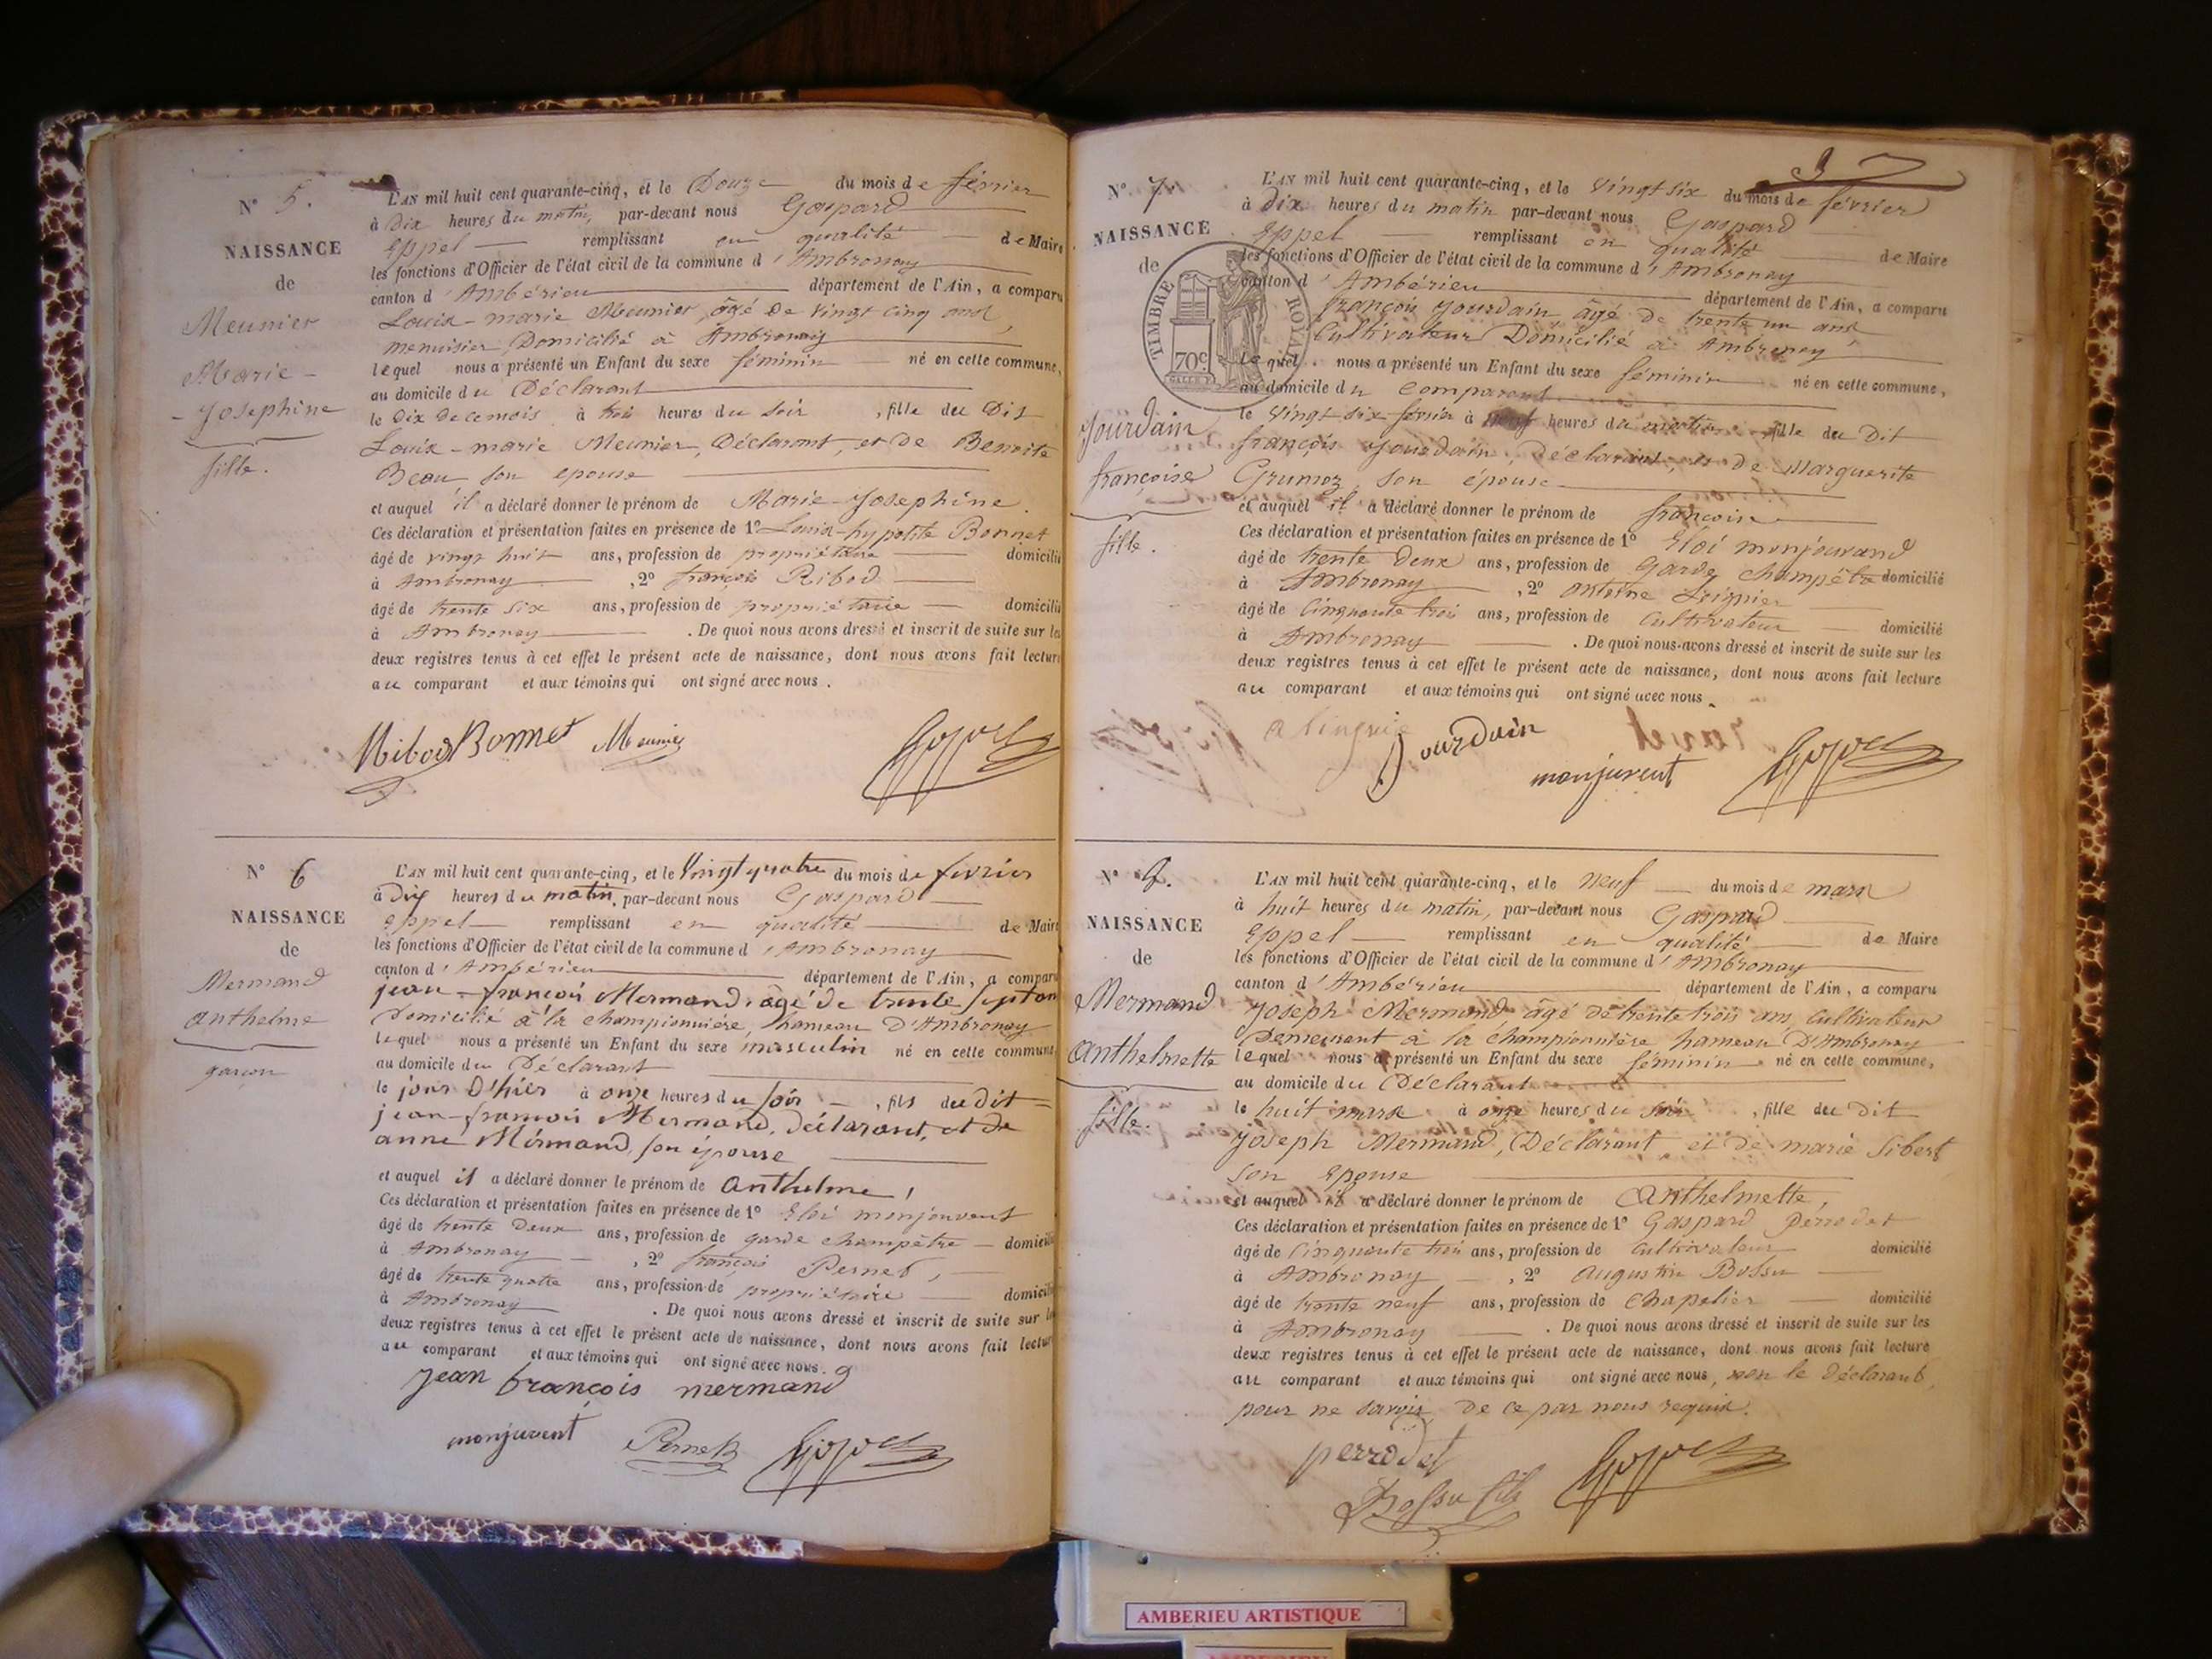 N° 5.
NAISSANCE
de
Meunier
Marie-
-Josephine
fille.
L'AN mil huit cent quarante-cinq, et le Douze du mois de février
à Dix heures du matin, par-devant nous Gaspard
Eppel remplissant en qualité de Maire
les fonctions d'Officier de l'état civil de la commune d'Ambronay
canton d'Ambérieu département de l'Ain, a comparu
Louis-marie Meunier, âgé de vingt cinq ans,
menuisier, Domicilié à Ambronay
lequel nous a présenté un Enfant du sexe féminin né en cette commune,
au domicile du Déclarant
le Dix de ce mois à trois heures du soir, fille du Dit
Louis-marie Meunier, Déclarant, et de Benoite
Beau son epouse
et auquel il a déclaré donner le prénom de Marie-Josephine.
Ces déclaration et présentation faites en présence de 1° Louis-hypolite Bonnet
âgé de vingt huit ans, profession de propriétaire domicilié
à Ambronay, 2° françois Ribod
âgé de trente six ans, profession de propriétaire domicilié
à Ambronay. De quoi nous avons dressé et inscrit de suite sur les
deux registres tenus à cet effet le présent acte de naissance, dont nous avons fait lecture
au comparant et aux témoins qui ont signé avec nous.
Ribod Bonnet Meunier Eppel
N° 6
NAISSANCE
de
Mermand
Anthelme
garçon
L'AN mil huit cent quarante-cinq, et le Vingt quatre du mois de février
à Dix heures du matin, par-devant nous Gaspard
Eppel remplissant en qualité de Maire
les fonctions d'Officier de l'état civil de la commune d'Ambronay
canton d'Ambérieu département de l'Ain, a comparu
jean-françois Mermand, âgé de trente sept ans
Domicilié à la championnière, hameau D'Ambronay
lequel nous a présenté un Enfant du sexe masculin né en cette commune,
au domicile du Déclarant
le jour D'hier à onze heures du soir, fils du dit
jean-françois Mermand, déclarant, et de
anne Mermand, son épouse
et auquel il a déclaré donner le prénom de anthelme,
Ces déclaration et présentation faites en présence de 1° Eloi monjouvent
âgé de trente Deux ans, profession de garde champêtre domicilié
à Ambronay, 2° françois Pernet,
âgé de trente quatre ans, profession de propriétaire domicilié
à Ambronay. De quoi nous avons dressé et inscrit de suite sur les
deux registres tenus à cet effet le présent acte de naissance, dont nous avons fait lecture
au comparant et aux témoins qui ont signé avec nous.
jean françois mermand
monjuvent Pernet Eppel
N° 7
NAISSANCE
de
TIMBRE ROYAL
70 c
Jourdain
françoise
fille.
L'AN mil huit cent quarante-cinq, et le Vingt six du mois de février
à dix heures du matin par-devant nous Gaspard
Eppel remplissant en qualité de Maire
les fonctions d'Officier de l'état civil de la commune d'Ambronay
canton d'Ambérieu département de l'Ain, a comparu
françois Jourdain âgé de trente un ans
Cultivateur Domicilié à Ambronay
lequel nous a présenté un Enfant du sexe féminin né en cette commune,
au domicile du comparant
le Vingt-six février à neuf heures du matin fille du Dit
françois Jourdain, déclarant, et de Marguerite
Grumoz, son épouse
et auquel il a déclaré donner le prénom de
Ces déclaration et présentation faites en présence de 1° Eloi monjouvand
âgé de trente Deux ans, profession de Garde champêtre domicilié
à Ambronay, 2° antoine
âgé de Cinquante trois ans, profession de Cultivateur domicilié
à Ambronay. De quoi nous avons dressé et inscrit de suite sur les
deux registres tenus à cet effet le présent acte de naissance, dont nous avons fait lecture
au comparant et aux témoins qui ont signé avec nous.
Jourdain
monjuvent Eppel
N° 8.
NAISSANCE
de
Mermand
Anthelmette
fille.
L'AN mil huit cent quarante-cinq, et le neuf du mois de mars
à huit heures du matin, par-devant nous Gaspard
Eppel remplissant en qualité de Maire
les fonctions d'Officier de l'état civil de la commune d'Ambronay
canton d'Ambérieu département de l'Ain, a comparu
Joseph Mermand âgé de trente trois ans, Cultivateur
Demeurant à la championnière hameau D'Ambronay
lequel nous a présenté un Enfant du sexe féminin né en cette commune,
au domicile du Déclarant
le huit mars à onze heures du soir, fille du Dit
Joseph Mermand, Déclarant et de marie Sibert
son Epouse
et auquel il a déclaré donner le prénom de Anthelmette,
Ces déclaration et présentation faites en présence de 1° Gaspard Perrodet
âgé de Cinquante trois ans, profession de Cultivateur domicilié
à Ambronay, 2° augustin Bossu
âgé de trente neuf ans, profession de Chapelier domicilié
à Ambronay. De quoi nous avons dressé et inscrit de suite sur les
deux registres tenus à cet effet le présent acte de naissance, dont nous avons fait lecture
au comparant et aux témoins qui ont signé avec nous, non le Déclarant,
pour ne savoir De ce par nous requis.
perrodet
Bossu fils Eppel
AMBERIEU ARTISTIQUE